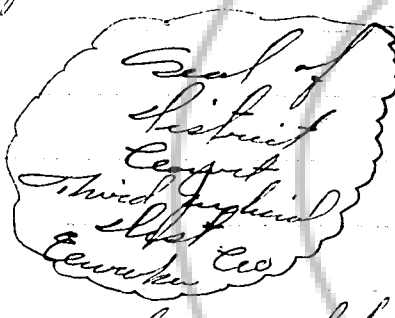 Seal of
District
Court
Third Judicial
Dist
Eureka Co